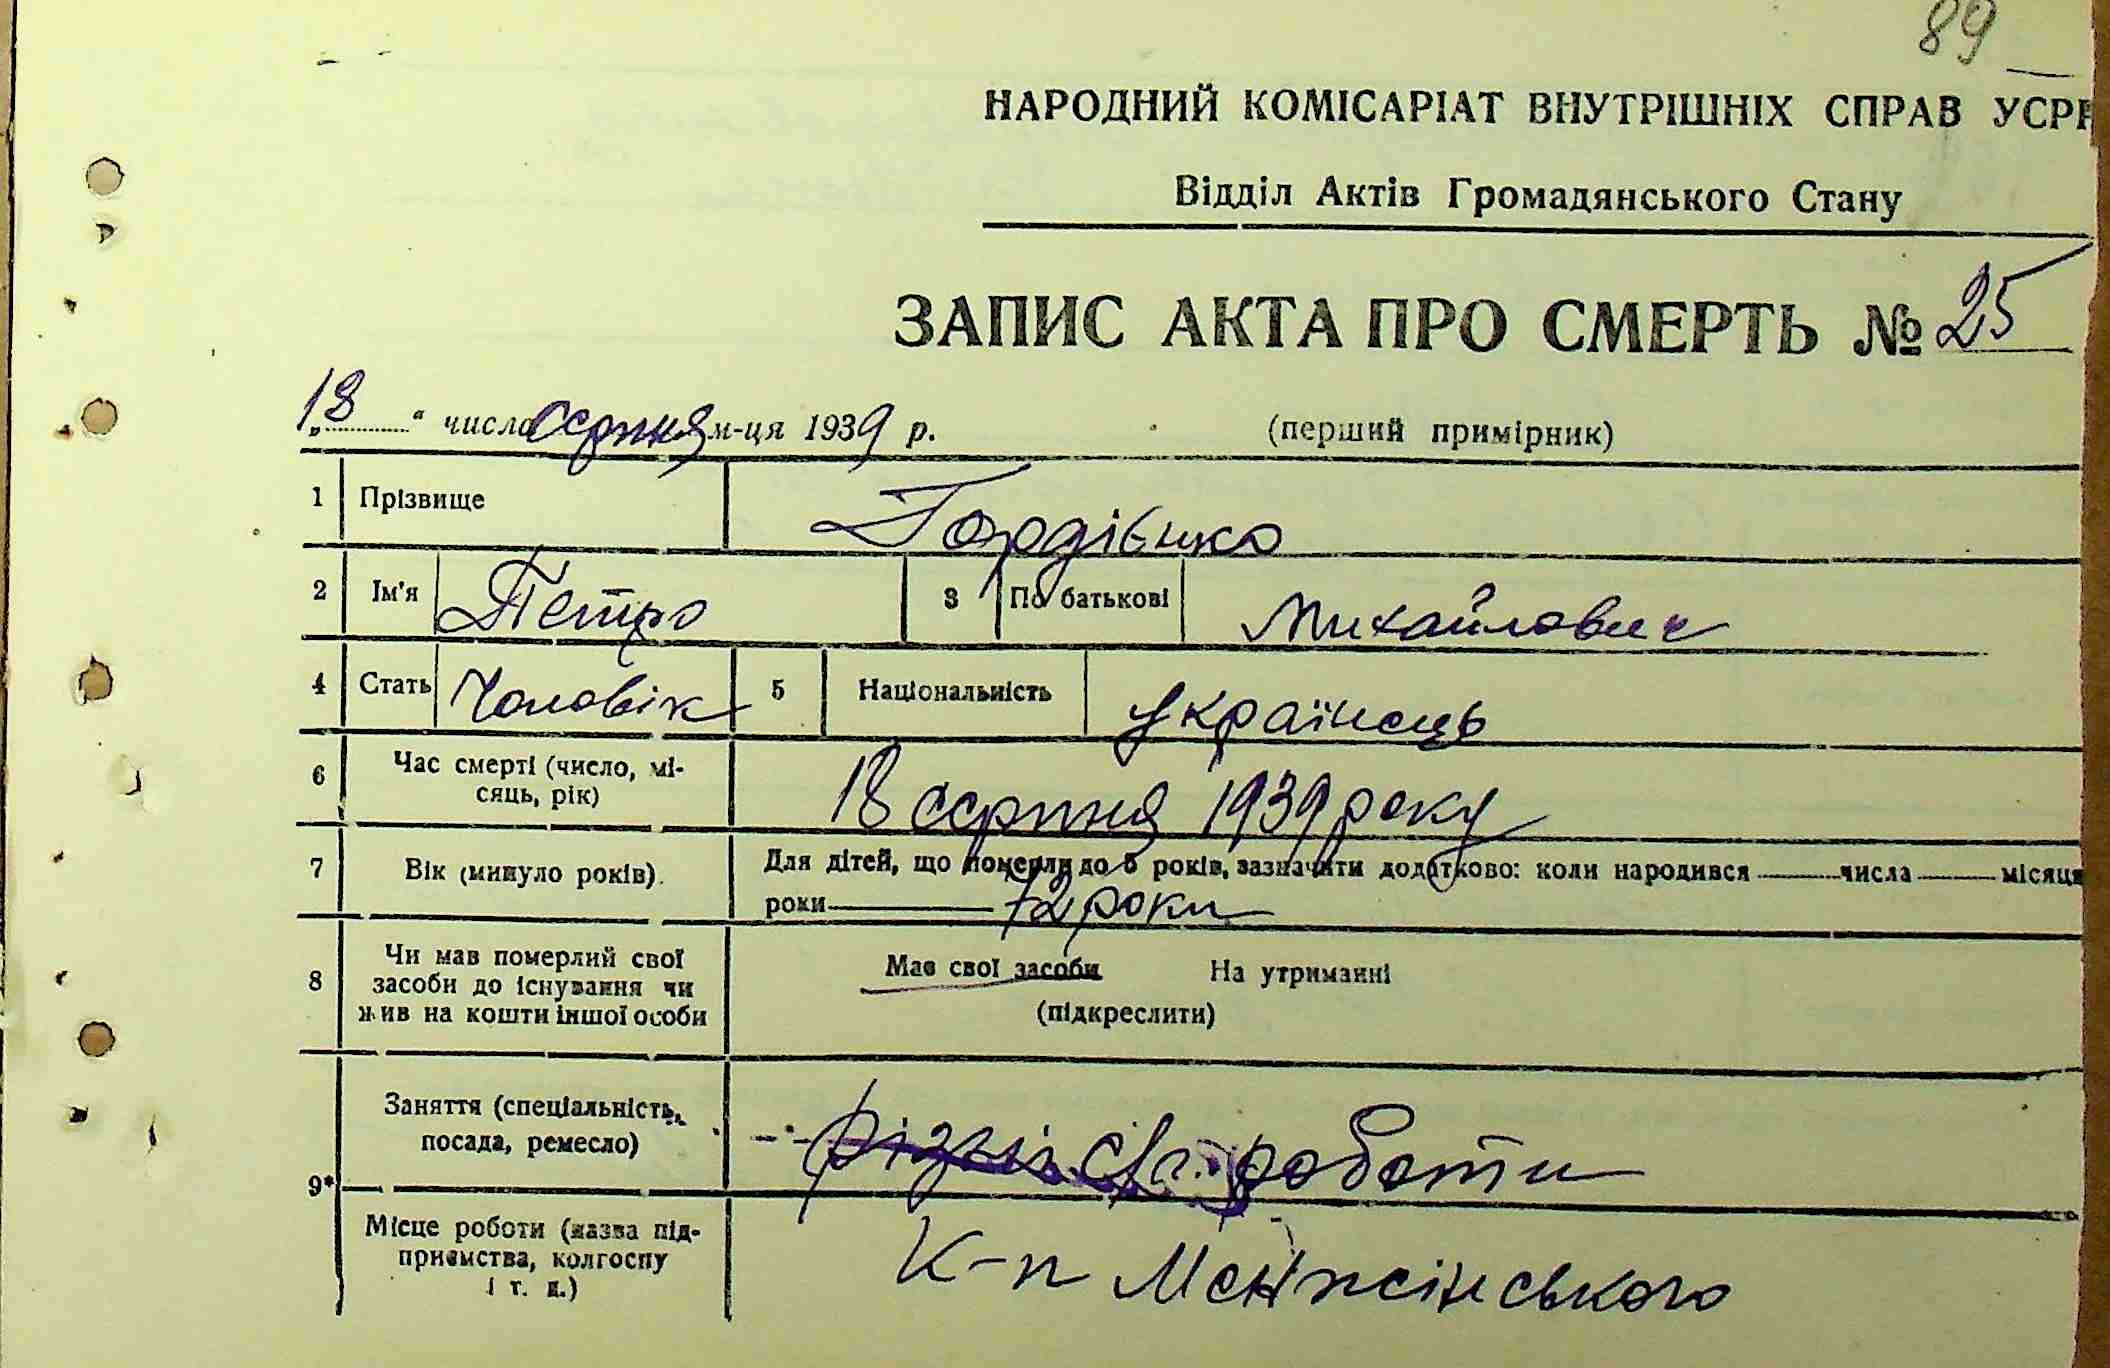 89
НАРОДНИЙ КОМІСАРІАТ ВНУТРІШНІХ СПРАВ УСРР
Відділ Актів Громадянського Стану
ЗАПИС АКТА ПРО СМЕРТЬ № 25
„18“ числа серпня м-ця 1939 р. (перший примірник)
1 Прізвище Гордієнко
2 Ім'я Петро 3 По батькові Михайлович
4 Стать Чоловік 5 Національність українець
6 Час смерті (число, мі-
сяць, рік) 18 серпня 1939 року
7 Вік (минуло років). Для дітей, що померли до 5 років, зазначити додатково: коли народився числа місяця
роки 72 роки
8 Чи мав померлий свої
засоби до існування чи
жив на кошти іншої особи
Має свої засоби На утриманні
(підкреслити)
9*
Заняття (спеціальність,
посада, ремесло) різні с/г. роботи
Місце роботи (назва під-
приємства, колгоспу
і т. д.) К-п Менжінського